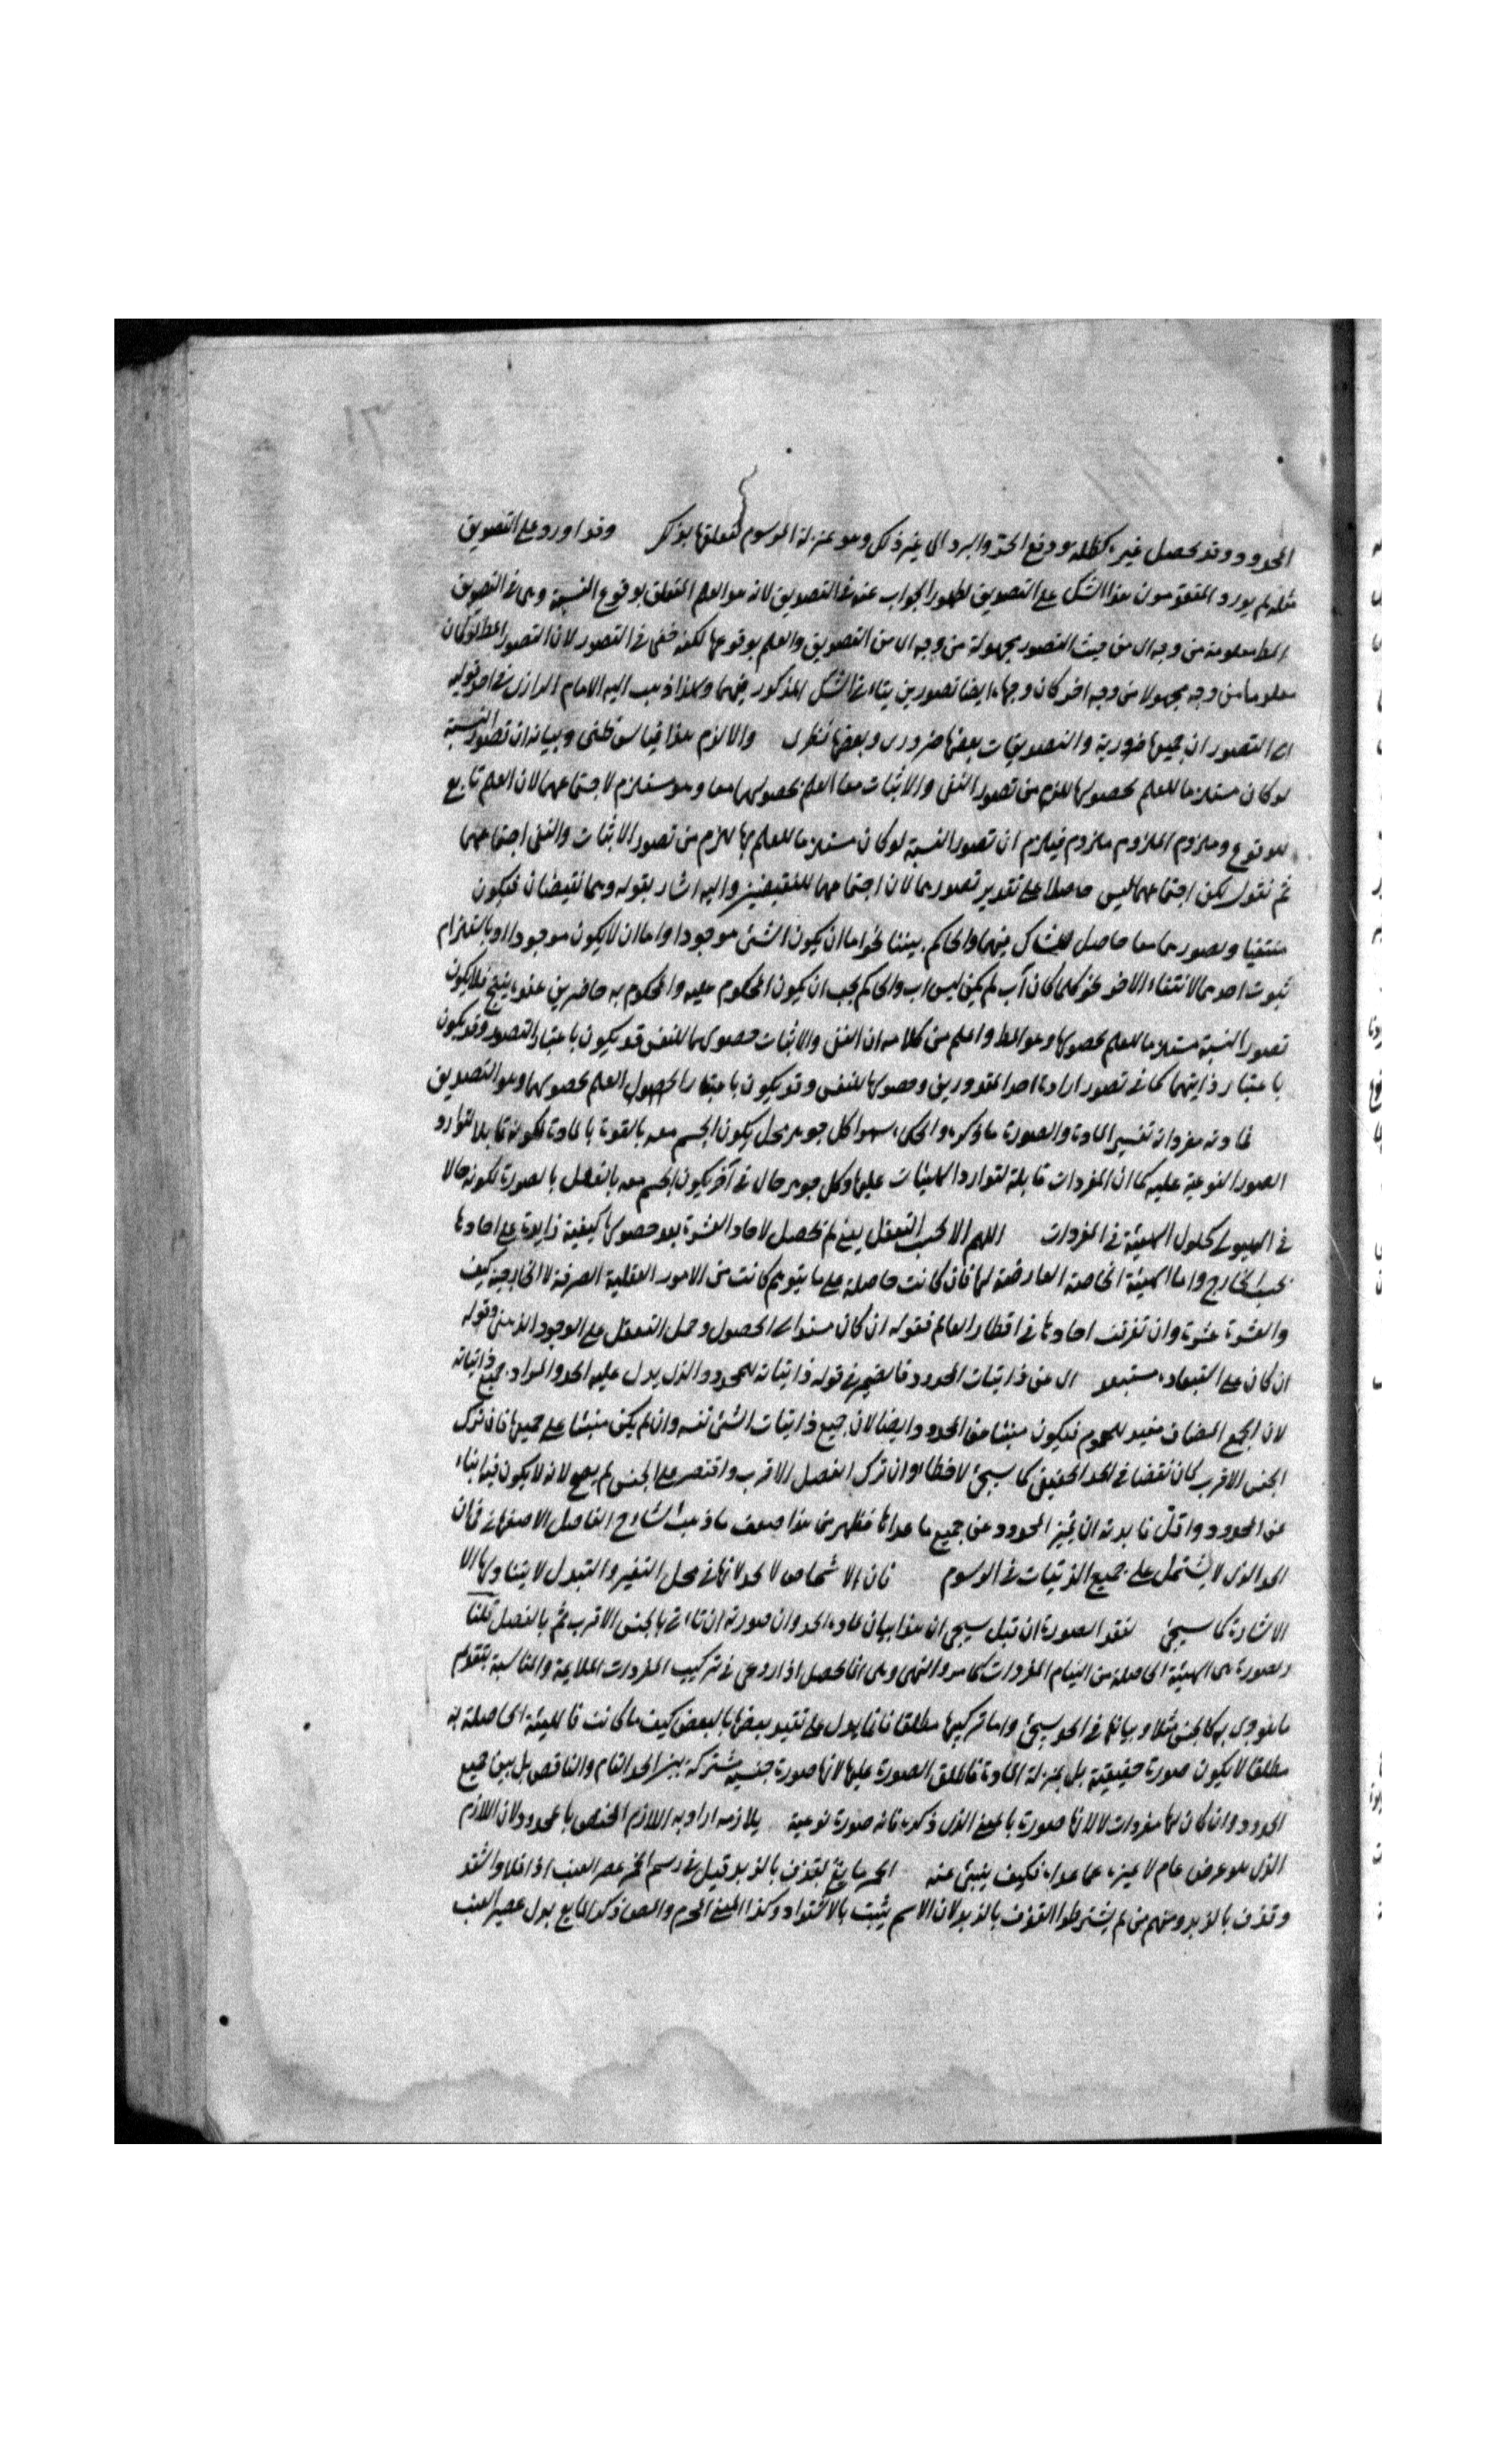 المحدود وقد يحصل غيره كظله ودفع الحر والبرد الى غير ذلك وهو بمنزلة المرسوم لتعلقها بذلك وقد اورد على التصديق
مثله لم يورد المتقدمون هذا الشك على التصديق لظهور الجواب عنه في التصديق لانه هو العلم المتعلق بوقوع النسبة وهى في التصديق
المط معلومة من وجه اى من حيث التصور مجهولة من وجه اى من التصديق والعلم بوقوعها لكنه خفى في التصور لان التصور المط لو كان
معلوما من وجه مجهولا من وجه اخر كان وجهاه ايضا تصورين يتاتى الشك المذكور فيهما ولهذا ذهب اليه الامام الرازى في احد قوليه
اى التصور ان جميعها ضرورية والتصديقات بعضها ضرورى وبعضها نظرى والا لزم هذا قياس خلفى وبيانه ان تصور النسبة
لو كان مستلزما للعلم بحصولها للزم من تصور النفى والاثبات معا العلم بحصولهما معا وهو مستلزم لاجتماعهما لان العلم تابع
للوقوع وملزوم الملزوم ملزوم فيلزم ان تصور النسبة لو كان مستلزما للعلم بها للزم من تصور الاثبات والنفى اجتماعهما
ثم نقول لكن اجتماعهما ليس حاصلا على تقدير تصورهما لان اجتماعهما للنقيضين واليه اشار بقوله وهما نقيضان فيكون
منتفيا وتصورهما معا حاصل للشاك فيهما والحاكم بيننا نحو اما ان يكون الشئ موجودا واما ان لا يكون موجودا او بالتزام
ثبوت احدهما لانتفاء الاخر نحو كلما كان آب لم يكن ليس اب والحاكم يجب ان يكون المحكوم عليه والمحكوم به حاضرين عنده ينتج فلا يكون
تصور النسبة مستلزما للعلم بحصولها وهو المط واعلم من كلامه ان النفى والاثبات حصولهما للنفس قد يكون باعتبار التصور وقد يكون
باعتبار ذايتهما كما في تصور ارادة احد المقدورين وحصولها للنفس وقد يكون باعتبار الحصول العلم بحصولهما وهو التصديق
فمادته مفرداته تفسير المادة والصورة ما ذكره والحكماء سموا كل جوهر محل يكون الجسم معه بالقوة بالمادة لكونه قابلا لتوارد
الصور النوعية عليه كما ان المفردات قابلة لتوارد الهيئات عليها وكل جوهر حال في آخر يكون الجسم معه بالفعل بالصورة لكونه حالا
في الهيولى كحلول الهيئة في المفردات اللهم الا بحسب التعقل يعنى لم يحصل لاحاد العشرة بعد حصولها كيفية زايدة على احادها
بحسب الخارج واما الهيئة الخاصة العارضة لها فان كانت حاصلة على ما يتوهم كانت من الامور العقلية الصرفة لا الخارجية كيف
والعشرة عشرة وان تفرقت احادها في اقطار العالم فقوله ان كان مستوى الحصول وحمل التعقل على الوجود الذهنى وقوله
ان كان على استبعاده مستبعد اى عن ذاتيات المحدود فالضمير في قوله ذاتياته للمحدود الذى يدل عليه الحد والمراد جميع ذاتياته
لان الجمع المضاف مفيد للعموم فيكون منبئا عن المحدود وايضا لان جميع ذاتيات الشئ نفسه وان لم يكن منبئا على جميعها فان ترك
الجنس الاقرب كان نقضا في الحد الحقيقى كما سيجئ لا خطاء وان ترك الفصل الاقرب واقتصر على الجنس لم يصح لانه لا يكون فيه انباء
عن المحدود واقل فايدته ان يميز المحدود عن جميع ما عداها فظهر من هذا ضعف ما ذهب الشارح الفاضل الاصفهانى فان
الحد الذى لا يشتمل على جميع الذاتيات في الرسوم فان الاشخاص لا تحد لانها في محل التغير والتبدل لا يتناولها الا
الاشارة كما سيجئ لفقد الصورة ان قيل سيجئ ان هذا بيان لمادة الحد وان صورته ان تاتى بالجنس الاقرب ثم بالفصل قلنا
وصورته هى الهيئة الحاصلة من التيام المفردات كما مر والتى وهى انما يحصل اذا روعى في تركيب المفردات الملايمة والمناسبة بتقديم
ما هو حرى به كالجنس مثلا وبيانها في الحد سيجئ واما تركيبها مطلقا فانما يدل على تقييد بعضها بالبعض كيف ما كانت فالهيئة الحاصلة به
مطلقا لا يكون صورة حقيقية بل بمنزلة المادة فاطلق الصورة عليها لانها صورة جنسية مشتركة بين الحد التام والناقص بل بين جميع
الحدود وان كان لها مفردات لا لانها صورة بالمعنى الذى ذكره فانه صورة نوعية بلازمه اراد به اللازم المختص بالمحدود لان اللازم
الذى هو عرض عام لا يميزه عما عداه فكيف ينبئ عنه الخمر مايع يقذف بالزبد قيل في رسم الخمر عصر العنب اذا غلا واشتد
وقذف بالزبد ومنهم من لم يشترطوا القذف بالزبد لان الاسم يثبت بالاشتداد وكذا المعنى المحرم والمص ذكر المايع بدل عصير العنب